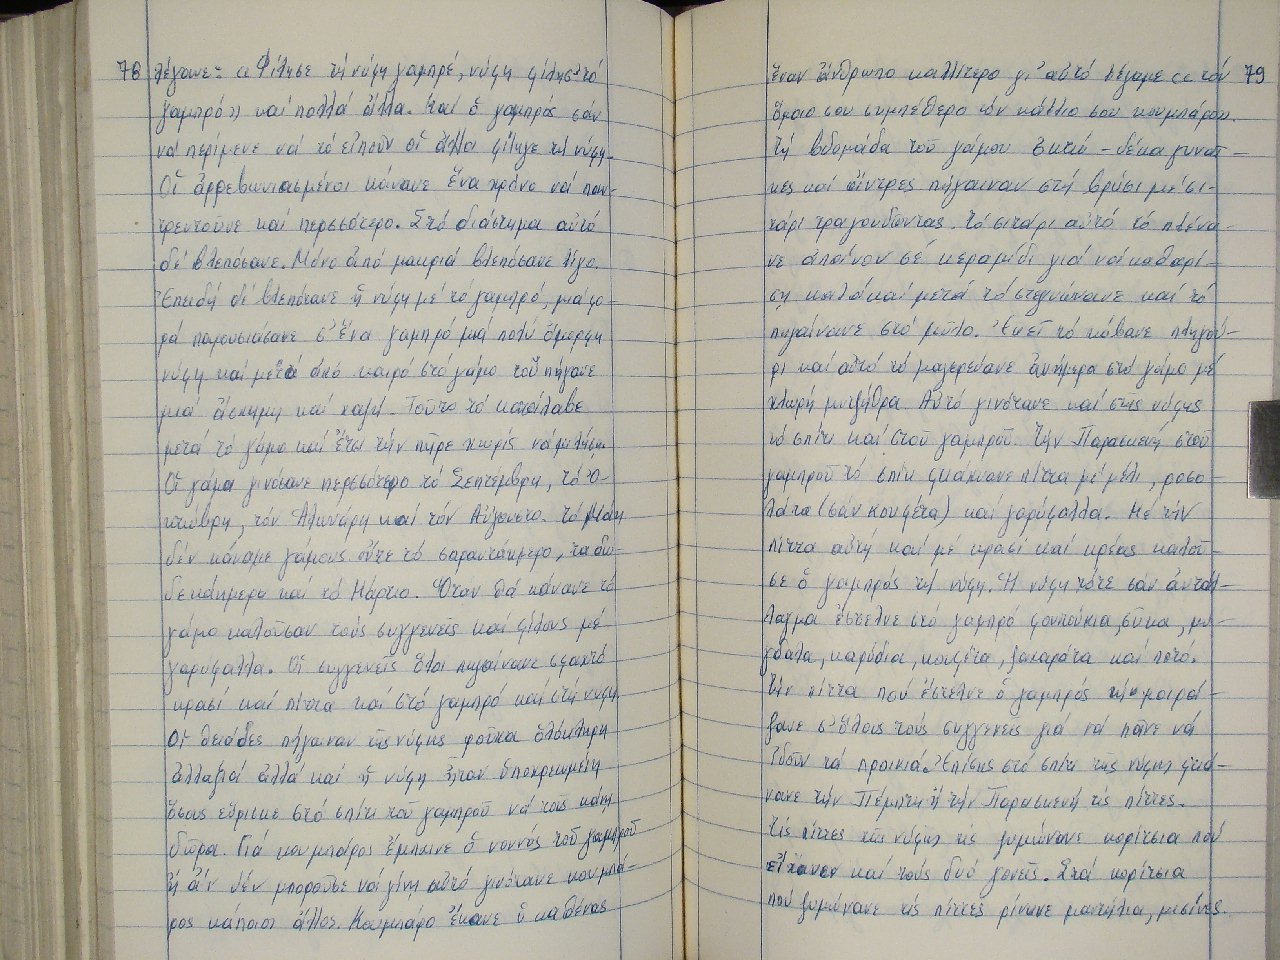 78
λέγανε: «Φίλησε τή νύφη γαμπρέ, νύφη φίλησ' τό
γαμπρό» καί πολλά ἄλλα. Καί ὁ γαμπρός σάν
νά περίμενε νά τό εἰποῦν οἱ ἄλλοι φίλαγε τή νύφη.
Οἱ ἀρρεβωνιασμένοι κάνανε ἕνα χρόνο νά παν-
τρευτοῦνε καί περσσότερο. Στό διάστημα αὐτό
δέ βλεπόσανε. Μόνο ἀπό μακριά βλεπόσανε λίγο.
Ἐπειδή δέ βλεπότανε ἡ νύφη μέ τό γαμπρό, μιά φο-
ρά παρουσιάσανε σ' ἕνα γαμπρό μιά πολύ ὄμορφη
νύφη καί μετά ἀπό καιρό στό γάμο τοῦ πήγανε
μιά ἄσκημη καί χαζή. Τοῦτο τό κατάλαβε
μετά τό γάμο καί ἔτσι τήν πῆρε χωρίς νά μιλήση.
Οἱ γάμοι γινόσανε περσσότερο τό Σεπτέμβρη, τό Ὀ-
κτώβρη, τόν Ἁλωνάρη καί τόν Αὔγουστο. Τό Μάη
δέν κάναμε γάμους οὔτε τό σαραντάημερο, τά δω-
δεκάημερα καί τό Μάρτιο. Ὅταν θά κάνανε τό
γάμο καλοῦσαν τούς συγγενεῖς καί φίλους μέ
γαρύφαλλα. Οἱ συγγενεῖς ὅλοι πηγαίνανε σφαχτό
κρασί καί πίττα καί στό γαμπρό καί στή νύφη.
Οἱ θειάδες πήγαιναν τῆς νύφης ροῦχα ὁλόκληρη
ἀλλαξιά ἀλλά καί ἡ νύφη ἦταν ὑποχρεωμένη
ὅσους εὕρισκε στό σπίτι τοῦ γαμπροῦ νά τούς κάνη
δῶρα. Γιά κουμπάρος ἔμπαινε ὁ νοννός τοῦ γαμπροῦ
ἤ ἄν δέν μποροῦσε νά γίνη αὐτό γινότανε κουμπά-
ρος κάποιος ἄλλος. Κουμπάρο ἔκανε ὁ καθένας
79
ἕναν ἄνθρωπο καλλίτερο γι' αὐτό λέγαμε «τόν
ὅμοιο σου συμπέθερο τόν κάλλιο σου κουμπάρο».
Τή βδομάδα τοῦ γάμου ὀκτώ - δέκα γυναῖ-
κες καί ἄντρες πήγαιναν στή βρύση μέ σι-
τάρι τραγουδῶντας. Τό σιτάρι αὐτό τό πλένα-
νε ἀπάνου σέ κεραμίδι γιά νά καθαρί-
ση καλά καί μετά τό στεγνώνανε καί τό
πηγαίνανε στό μῦλο. Ἐκεῖ τό κόβανε πληγού-
ρι καί αὐτό τό μαγερεύανε ἀνήμερα στό γάμο μέ
χλωρή μυζήθρα. Αὐτό γινότανε καί στῆς νύφης
τό σπίτι καί στοῦ γαμπροῦ. Τήν Παρασκευή στοῦ
γαμπροῦ τό σπίτι φκιάνανε πίττα μέ μέλι, ροσο-
λάτα (σάν κουφέτα) καί γαρύφαλλα. Μέ τήν
πίττα αὐτή καί μέ κρασί καί κρέας καλοῦ-
σε ὁ γαμπρός τή νύφη. Ἡ νύφη τότε σάν ἀντάλ-
λαγμα ἔστελνε στό γαμπρό φουντούκια, σῦκα, μύ-
γδαλα, καρύδια, κουφέτα, ζαχαράτα καί ποτό.
Τήν πίττα πού ἔστελνε ὁ γαμπρός τή μοιρά-
ζανε σ' ὅλους τούς συγγενεῖς γιά νά πᾶνε νά
ἰδοῦν τά προικιά. Ἐπίσης στό σπίτι τῆς νύφης φκιά-
νανε τήν Πέμπτη ἤ τήν Παρασκευή τίς πίττες.
Τίς πίττες τῆς νύφης τίς ζυμώνανε κορίτσια πού
εἴχανε καί τούς δυό γονεῖς. Στά κορίτσια
πού ζυμώνανε τίς πίττες ρίχνανε μαντήλια, μεσίνες.